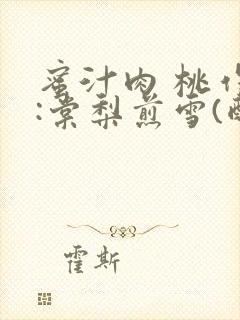 蜜汁肉桃作
:棠梨煎雪(
霍斯